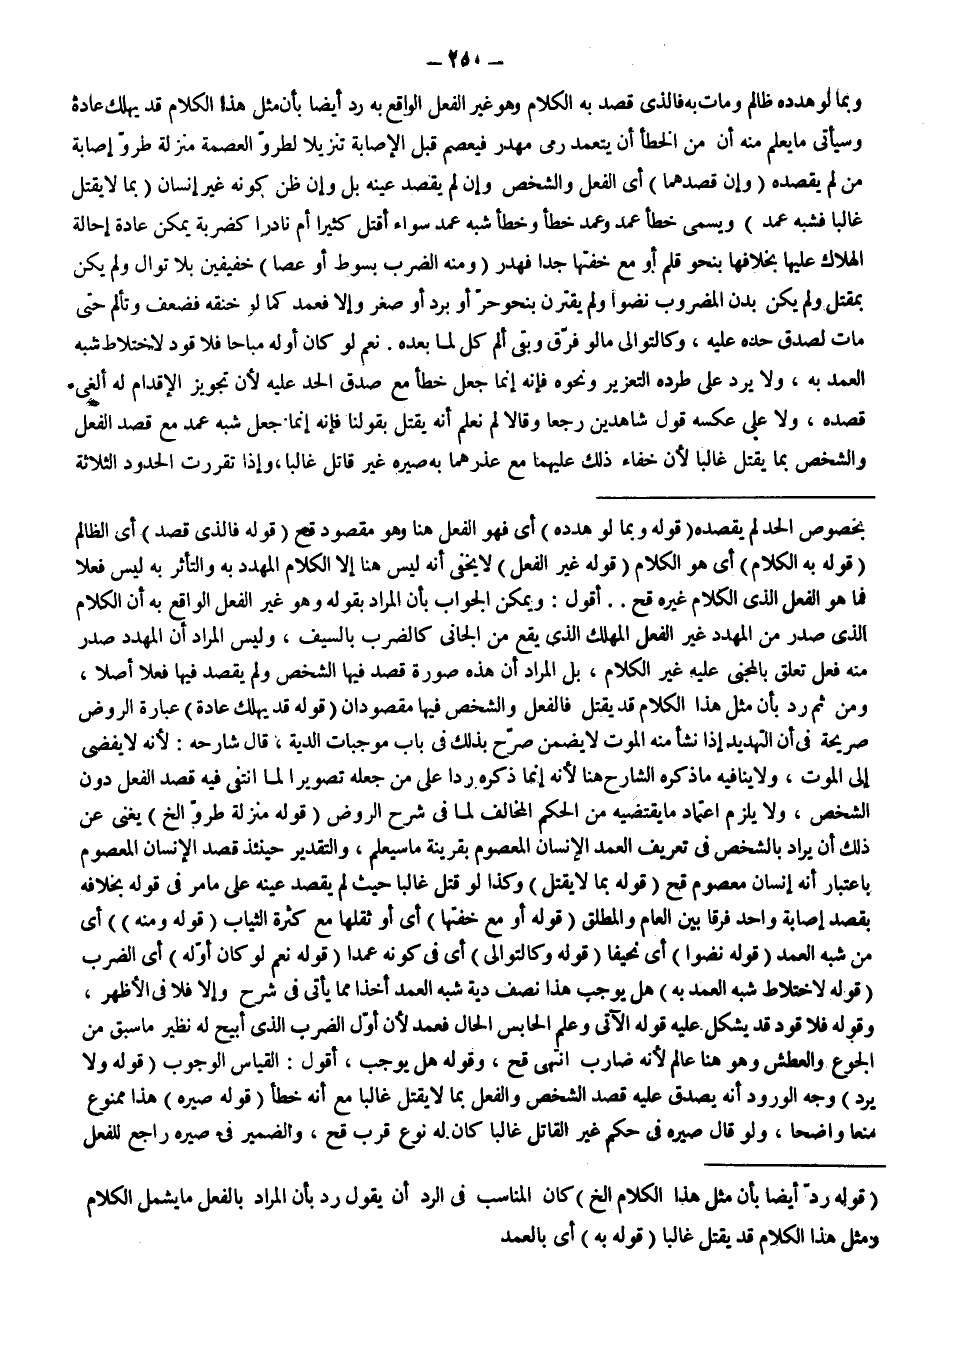 — ٢٥٠ —
وبما لو هدده ظالم ومات به فالذى قصد به الكلام وهو غير الفعل الواقع به رد أيضا بأن مثل هذا الكلام قد يهلك عادة
وسيأتى مايعلم منه أن من الخطأ أن يتعمد رمى مهدر فيعصم قبل الإصابة تنزيلا لطروّ العصمة منزلة طروّ إصابة
من لم يقصده ( وإن قصدهما ) أى الفعل والشخص وإن لم يقصد عينه بل وإن ظن كونه غير إنسان ( بما لايقتل
غالبا فشبه عمد ) ويسمى خطأ عمد وعمد خطأ وخطأ شبه عمد سواء أقتل كثيرا أم نادرا كضربة يمكن عادة إحالة
الهلاك عليها بخلافها بنحو قلم أو مع خفتها جدا فهدر ( ومنه الضرب بسوط أو عصا ) خفيفين بلا توال ولم يكن
بمقتل ولم يكن بدن المضروب نضوا ولم يقترن بنحو حرّ أو برد أو صغر وإلا فعمد كما لو خنقه فضعف وتألم حتى
مات لصدق حده عليه ، وكالتوالى مالو فرّق وبقى ألم كل لما بعده . نعم لو كان أوله مباحا فلا قود لاختلاط شبه
العمد به ، ولا يرد على طرده التعزير ونحوه فإنه إنما جعل خطأ مع صدق الحد عليه لأن تجويز الإقدام له ألغى
قصده ، ولا على عكسه قول شاهدين رجعا وقالا لم نعلم أنه يقتل بقولنا فإنه إنما جعل شبه عمد مع قصد الفعل
والشخص بما يقتل غالبا لأن خفاء ذلك عليهما مع عذرهما به صيره غير قاتل غالبا ، وإذا تقررت الحدود الثلاثة
بخصوص الحد لم يقصده ( قوله وبما لو هدده ) أى فهو الفعل هنا وهو مقصود قح ( قوله فالذى قصد ) أى الظالم
( قوله به الكلام ) أى هو الكلام ( قوله غير الفعل ) لايخفى أنه ليس هنا إلا الكلام المهدد به والتأثر به ليس فعلا
فما هو الفعل الذى الكلام غيره قح . . أقول : ويمكن الجواب بأن المراد بقوله وهو غير الفعل الواقع به أن الكلام
الذى صدر من المهدد غير الفعل المهلك الذى يقع من الجانى كالضرب بالسيف ، وليس المراد أن المهدد صدر
منه فعل تعلق بالمجنى عليه غير الكلام ، بل المراد أن هذه صورة قصد فيها الشخص ولم يقصد فيها فعلا أصلا ،
ومن ثم رد بأن مثل هذا الكلام قد يقتل فالفعل والشخص فيها مقصودان ( قوله قد يهلك عادة ) عبارة الروض
صريحة فى أن التهديد إذا نشأ منه الموت لايضمن صرّح بذلك فى باب موجبات الدية ، قال شارحه : لأنه لايفضى
إلى الموت ، ولا ينافيه ماذكره الشارح هنا لأنه إنما ذكره ردا على من جعله تصويرا لما انتفى فيه قصد الفعل دون
الشخص ، ولا يلزم اعتماد مايقتضيه من الحكم المخالف لما فى شرح الروض ( قوله منزلة طروّ الخ ) يغنى عن
ذلك أن يراد بالشخص فى تعريف العمد الإنسان المعصوم بقرينة ماسيعلم ، والتقدير حينئذ قصد الإنسان المعصوم
باعتبار أنه إنسان معصوم قح ( قوله بما لايقتل ) وكذا لو قتل غالبا حيث لم يقصد عينه على مامر فى قوله بخلافه
بقصد إصابة واحد فرقا بين العام والمطلق ( قوله أو مع خفتها ) أى أو ثقلها مع كثرة الثياب ( قوله ومنه ) ) أى
من شبه العمد ( قوله نضوا ) أى نحيفا ( قوله وكالتوالى ) أى فى كونه عمدا ( قوله نعم لو كان أوّله ) أى الضرب
( قوله لاختلاط شبه العمد به ) هل يوجب هذا نصف دية شبه العمد أخذا مما يأتى فى شرح وإلا فلا فى الأظهر ،
وقوله فلا قود قد يشكل عليه قوله الآتى وعلم الحابس الحال فعمد لأن أوّل الضرب الذى أبيح له نظير ماسبق من
الجوع والعطش وهو هنا عالم لأنه ضارب انتهى قح ، وقوله هل يوجب ، أقول : القياس الوجوب ( قوله ولا
يرد ) وجه الورود أنه يصدق عليه قصد الشخص والفعل بما لايقتل غالبا مع أنه خطأ ( قوله صيره ) هذا ممنوع
منعا واضحا ، ولو قال صيره فى حكم غير القاتل غالبا كان له نوع قرب قح ، والضمير فى صيره راجع للفعل
( قوله ردّ أيضا بأن مثل هذا الكلام الخ ) كان المناسب فى الرد أن يقول رد بأن المراد بالفعل مايشمل الكلام
ومثل هذا الكلام قد يقتل غالبا ( قوله به ) أى بالعمد